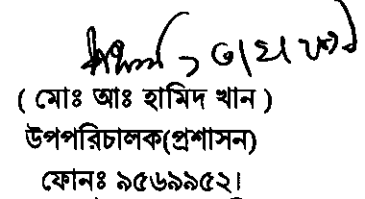 ( মোঃ আঃ হামিদ খান )
উপপরিচালক(প্রশাসন)
ফোনঃ ৯৫৬৯৯৫২।